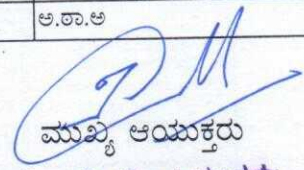 ಅ.ಠಾ.ಅ
ಮುಖ್ಯ ಆಯುಕ್ತರು